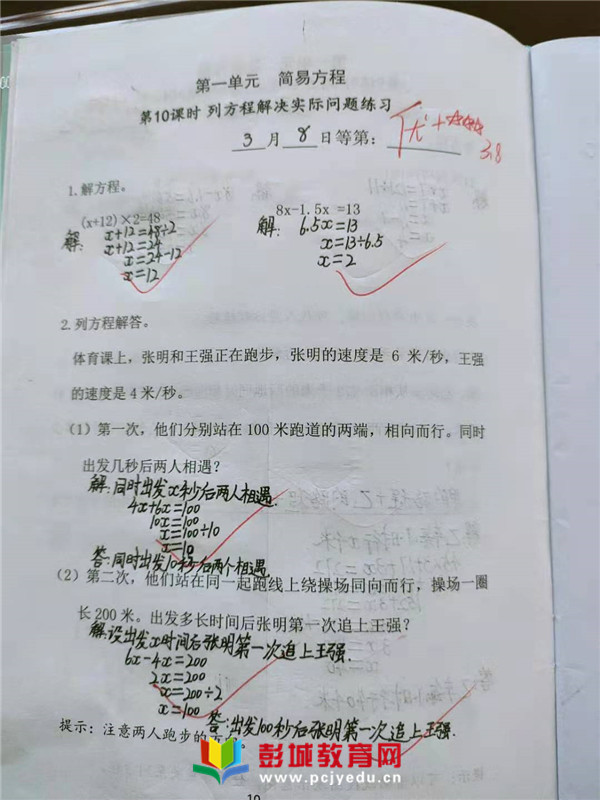 第一单元 简易方程
第10课时 列方程解决实际问题练习
3月8日等第：优+
3.8
1.解方程。
(x+12)×2=48 8x-1.5x =13
解: x+12=48÷2 解: 6.5x=13
x+12=24 x=13÷6.5
x=24-12 x=2
x=12
2.列方程解答。
体育课上，张明和王强正在跑步，张明的速度是 6 米/秒，王强
的速度是4米/秒。
（1）第一次，他们分别站在100米跑道的两端，相向而行。同时
出发几秒后两人相遇？
解:同时出发x秒后两人相遇.
4x+6x=100
10x=100
x=100÷10
x=10
答:同时出发10秒后两个相遇.
（2）第二次，他们站在同一起跑线上绕操场同向而行，操场一圈
长200米。出发多长时间后张明第一次追上王强？
解:设出发x时间后张明第一次追上王强.
6x-4x=200
2x=200
x=200÷2
x=100
答:出发100秒后张明第一次追上王强.
提示：注意两人跑步的
彭城教育网
www.pcjyedu.cn
10